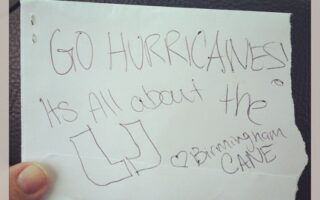 GO HURRICANES!
Its All about the
U ♡Birmingham
CANE